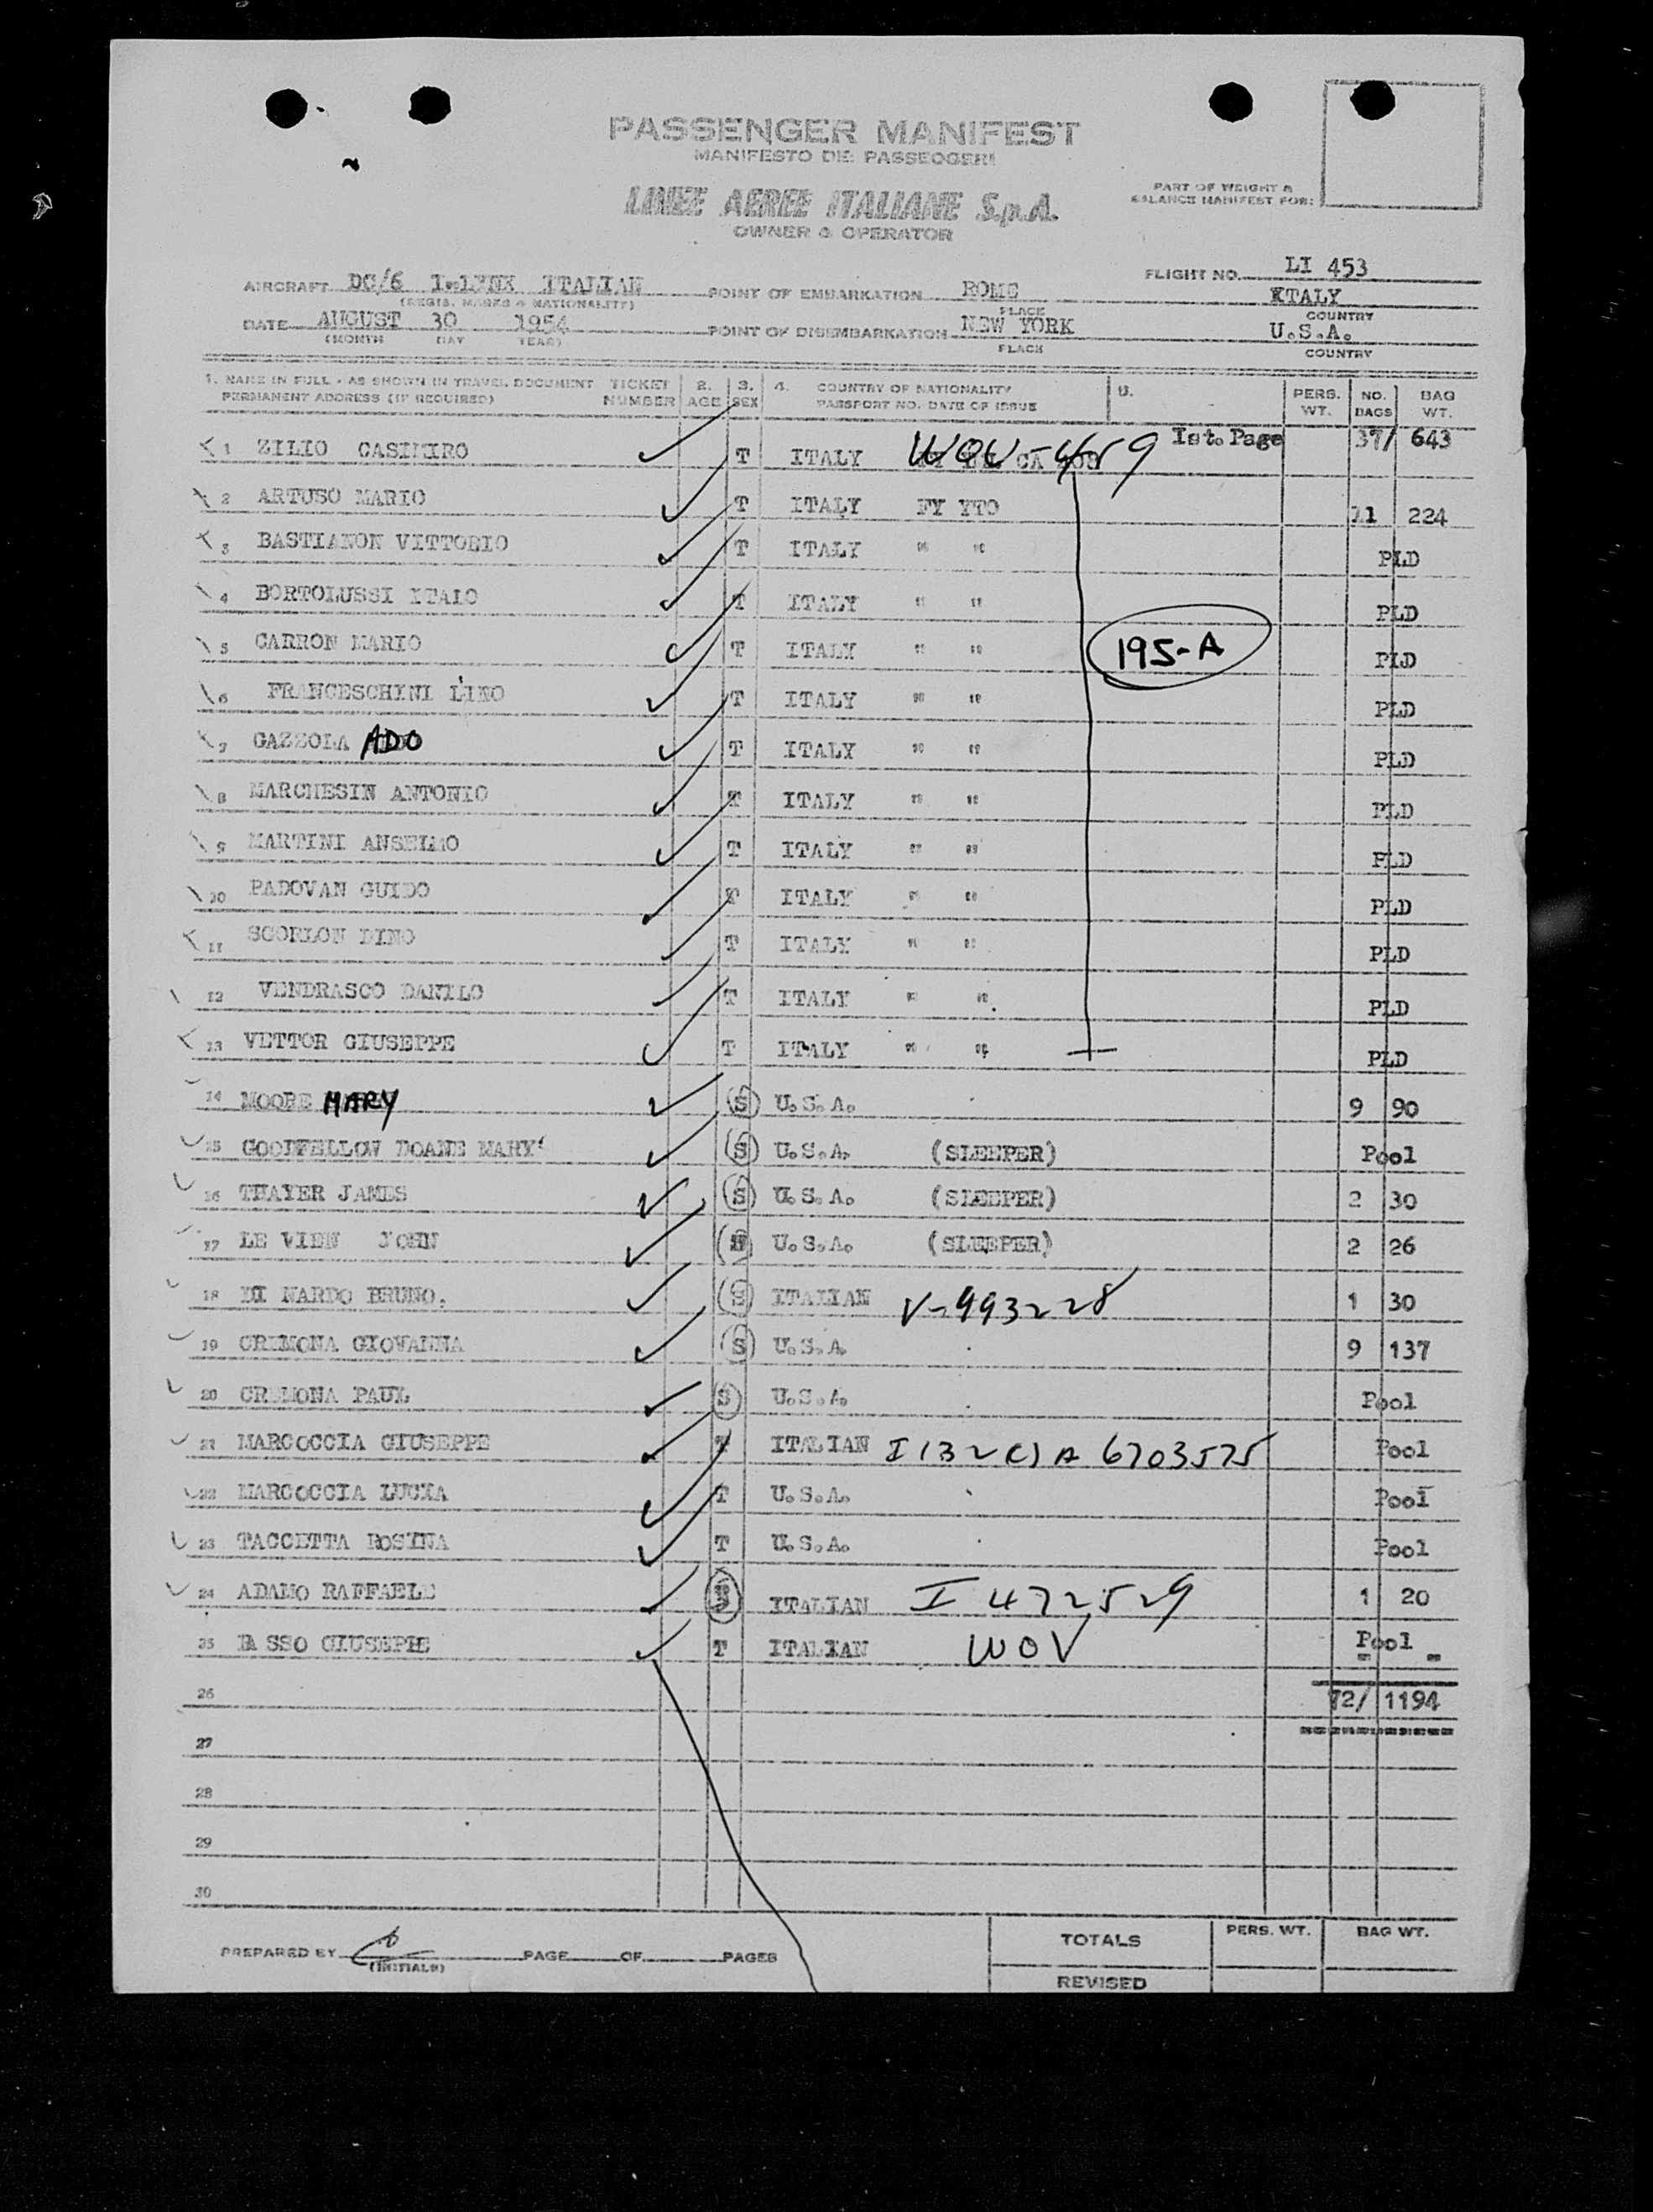 PASSENGER MANIFEST
MANIFESTO DEI PASSEGGERI
LINEE AEREE ITALIANE S.p.A.
OWNER & OPERATOR
PART OF WEIGHT &
BALANCE MANIFEST FOR:
FLIGHT NO. LI 453
AIRCRAFT DC/6 ITALIAN POINT OF EMBARKATION ROME ITALY
(REGIS. MARKS & NATIONALITY) PLACE COUNTRY
DATE AUGUST 30 1954 POINT OF DISEMBARKATION NEW YORK U.S.A.
(MONTH DAY YEAR) PLACE COUNTRY
1. NAME IN FULL - AS SHOWN IN TRAVEL DOCUMENT TICKET 2. 3. 4. COUNTRY OF NATIONALITY 5. PERS. NO. BAG
PERMANENT ADDRESS (IF REQUIRED) NUMBER AGE SEX PASSPORT NO. DATE OF ISSUE WT. BAGS WT.
1 ZILIO CASIMIRO T ITALY WOV-459 Ist. Page 37/ 643
2 ARTUSO MARIO T ITALY FY YTO 11 224
3 BASTIANON VITTORIO T ITALY " " PLD
4 BORTOLUSSI ITALO T ITALY " " PLD
5 CARRON MARIO T ITALY " " 195-A PLD
6 FRANCESCHINI LINO T ITALY " " PLD
7 GAZZOLA ADO T ITALY " " PLD
8 MARCHESIN ANTONIO T ITALY " " PLD
9 MARTINI ANSELMO T ITALY " " PLD
10 PADOVAN GUIDO T ITALY " " PLD
11 SCORLON DINO T ITALY " " PLD
12 VENDRASCO DANILO T ITALY " " PLD
13 VETTOR GIUSEPPE T ITALY " " PLD
14 MOORE MARY (S) U.S.A. 9 90
15 GOODFELLOW DOANE MARY (S) U.S.A. (SLEEPER) Pool
16 THAYER JAMES (S) U.S.A. (SLEEPER) 2 30
17 LE VIEN JOHN U.S.A. (SLEEPER) 2 26
18 DI NARDO BRUNO. (S) ITALIAN V-993228 1 30
19 CREMONA GIOVANNA (S) U.S.A. 9 137
20 CREMONA PAUL (S) U.S.A. Pool
21 MARCOCCIA GIUSEPPE T ITALIAN I 132(c) A 6703575 Pool
22 MARCOCCIA LUCIA T U.S.A. Pool
23 TACCETTA ROSINA T U.S.A. Pool
24 ADAMO RAFFAELE ITALIAN I 472529 1 20
25 BASSO GIUSEPPE T ITALIAN WOV Pool
26 72/ 1194
27
28
29
30
PREPARED BY PAGE OF PAGES TOTALS PERS. WT. BAG WT.
(INITIALS)
REVISED